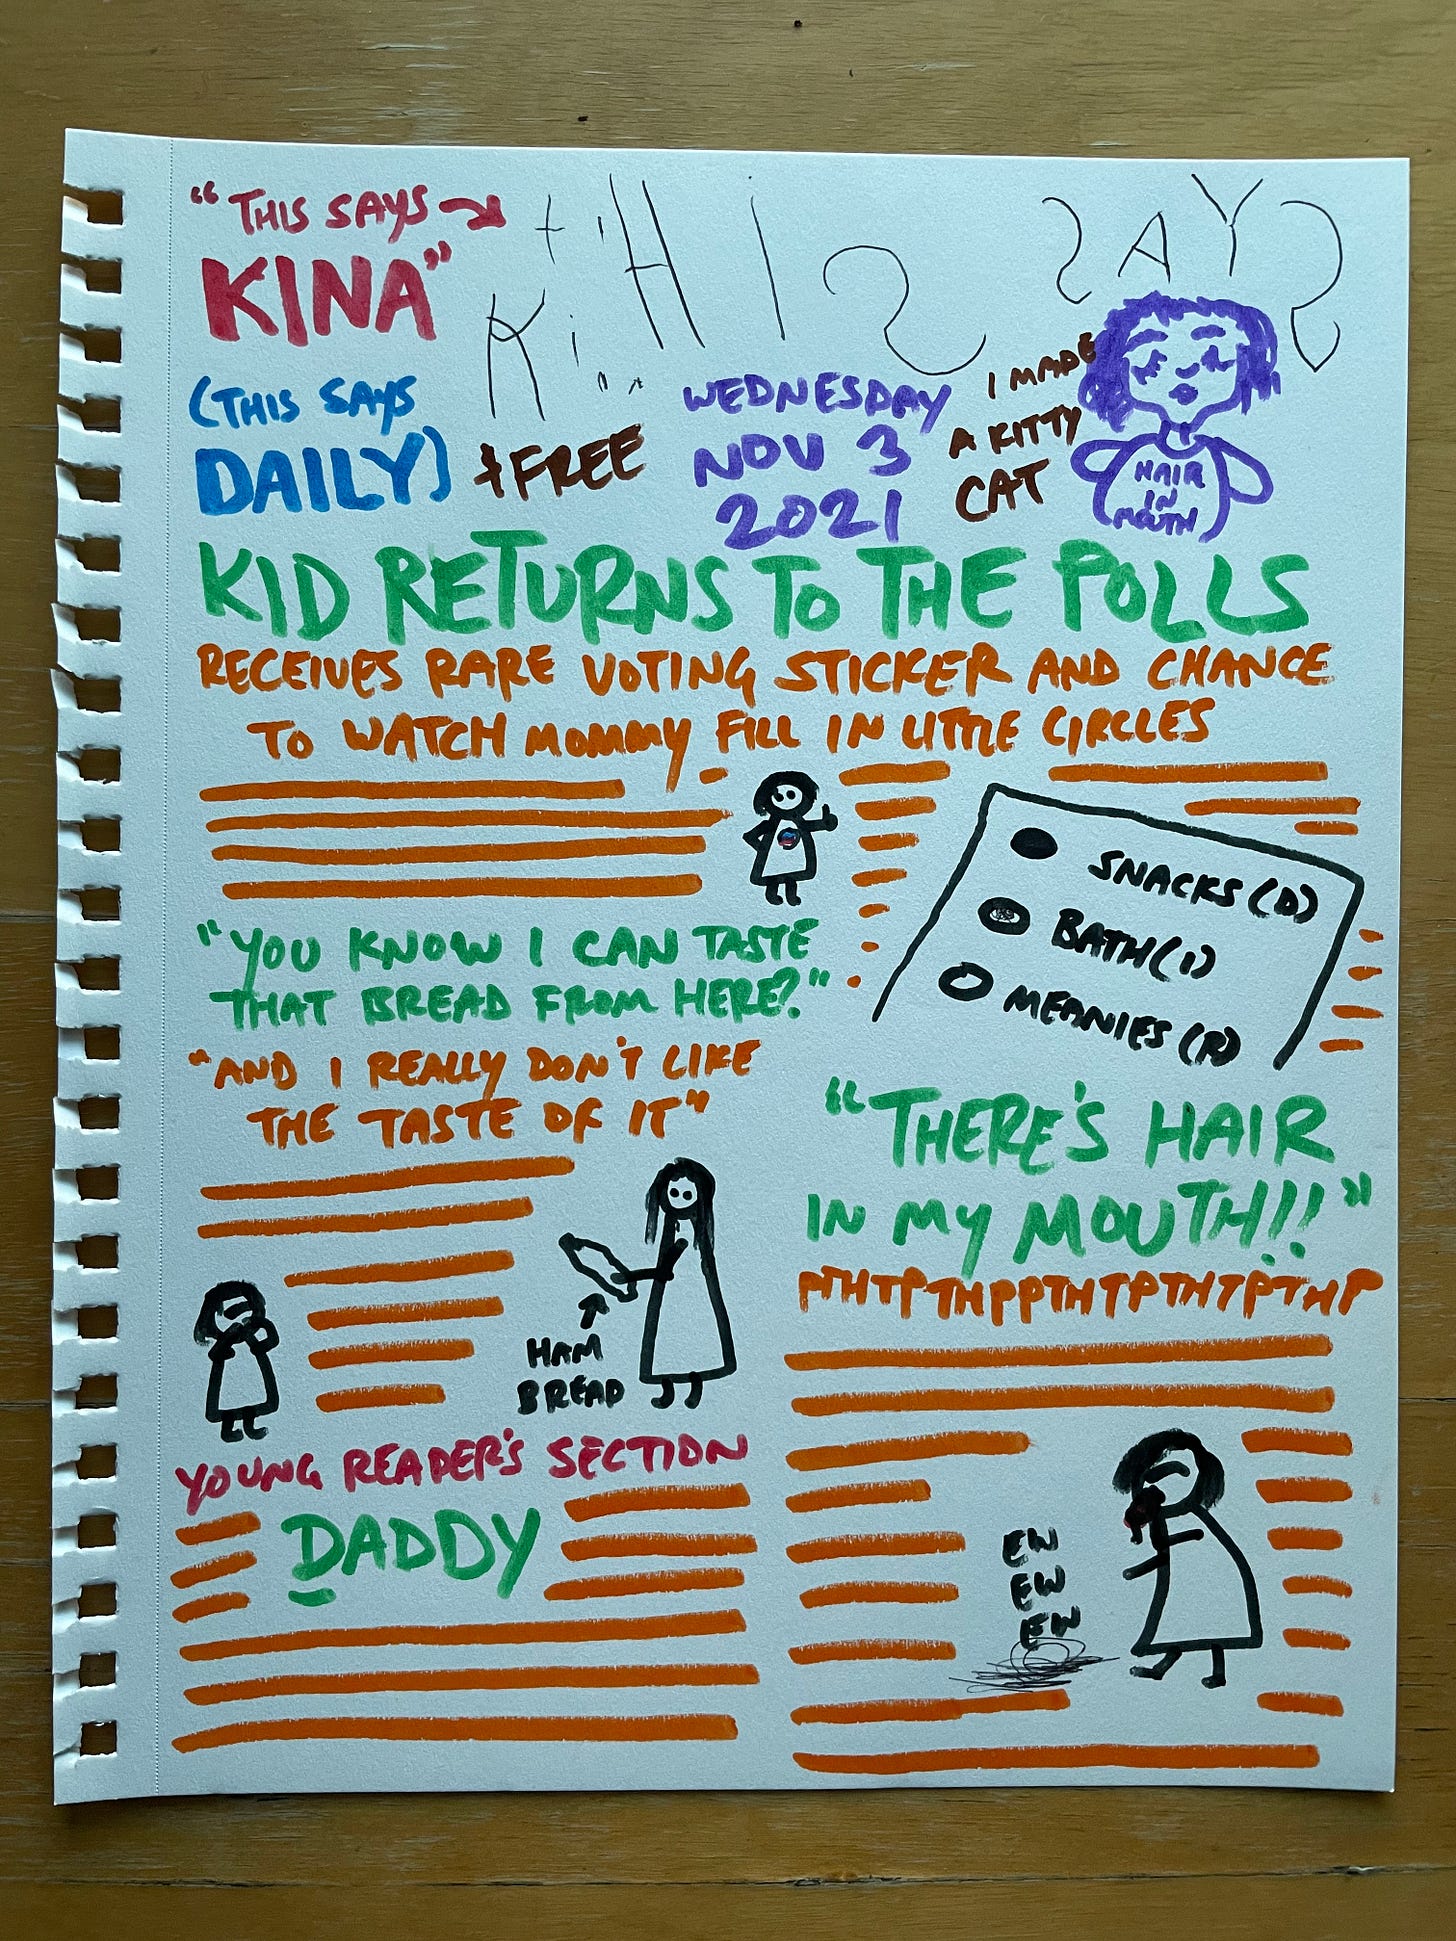 "THIS SAYS
KINA"
tiHIS SAYS
Ki
(THIS SAYS
DAILY)
+FREE
WEDNESDAY
NOV 3
2021
I MADE
A KITTY
CAT
HAIR
IN
MOUTH
KID RETURNS TO THE POLLS
RECEIVES RARE VOTING STICKER AND CHANCE
TO WATCH MOMMY FILL IN LITTLE CIRCLES
SNACKS (D)
BATH (I)
MEANIES (R)
"YOU KNOW I CAN TASTE
THAT BREAD FROM HERE?"
"AND I REALLY DON'T LIKE
THE TASTE OF IT"
HAM
BREAD
"THERE'S HAIR
IN MY MOUTH!!"
PTHTPTHPPTHTPTHTPTHP
EW
EW
EW
YOUNG READER'S SECTION
DADDY